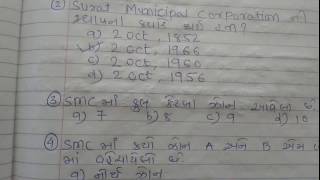 (2) Surat Municipal Corporation ની
સ્થાપના ક્યારે થઈ હતી?
a) 2 oct, 1852
b) 2 oct, 1966
c) 2 oct, 1960
d) 2 oct, 1956
(3) SMC માં કુલ કેટલા ઝોન આવેલા છે
a) 7 b) 8 c) 9 d) 10
(4) SMC માં કયો ઝોન A અને B એમ
માં વહેંચાયેલો છે.
a) નોર્થ ઝોન